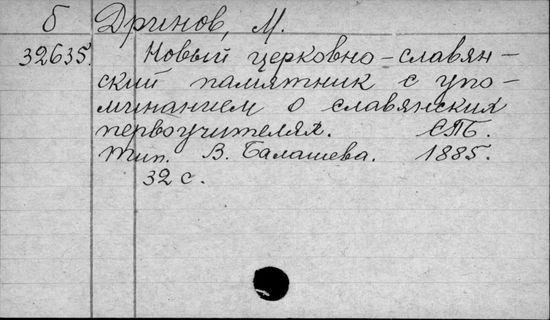 б Дринов, М.
32635. Новый церковно-славян-
ский памятник с упо-
минанием о славянских
первоучителях. СПБ.
тип. В. Балашева. 1885.
32 с.